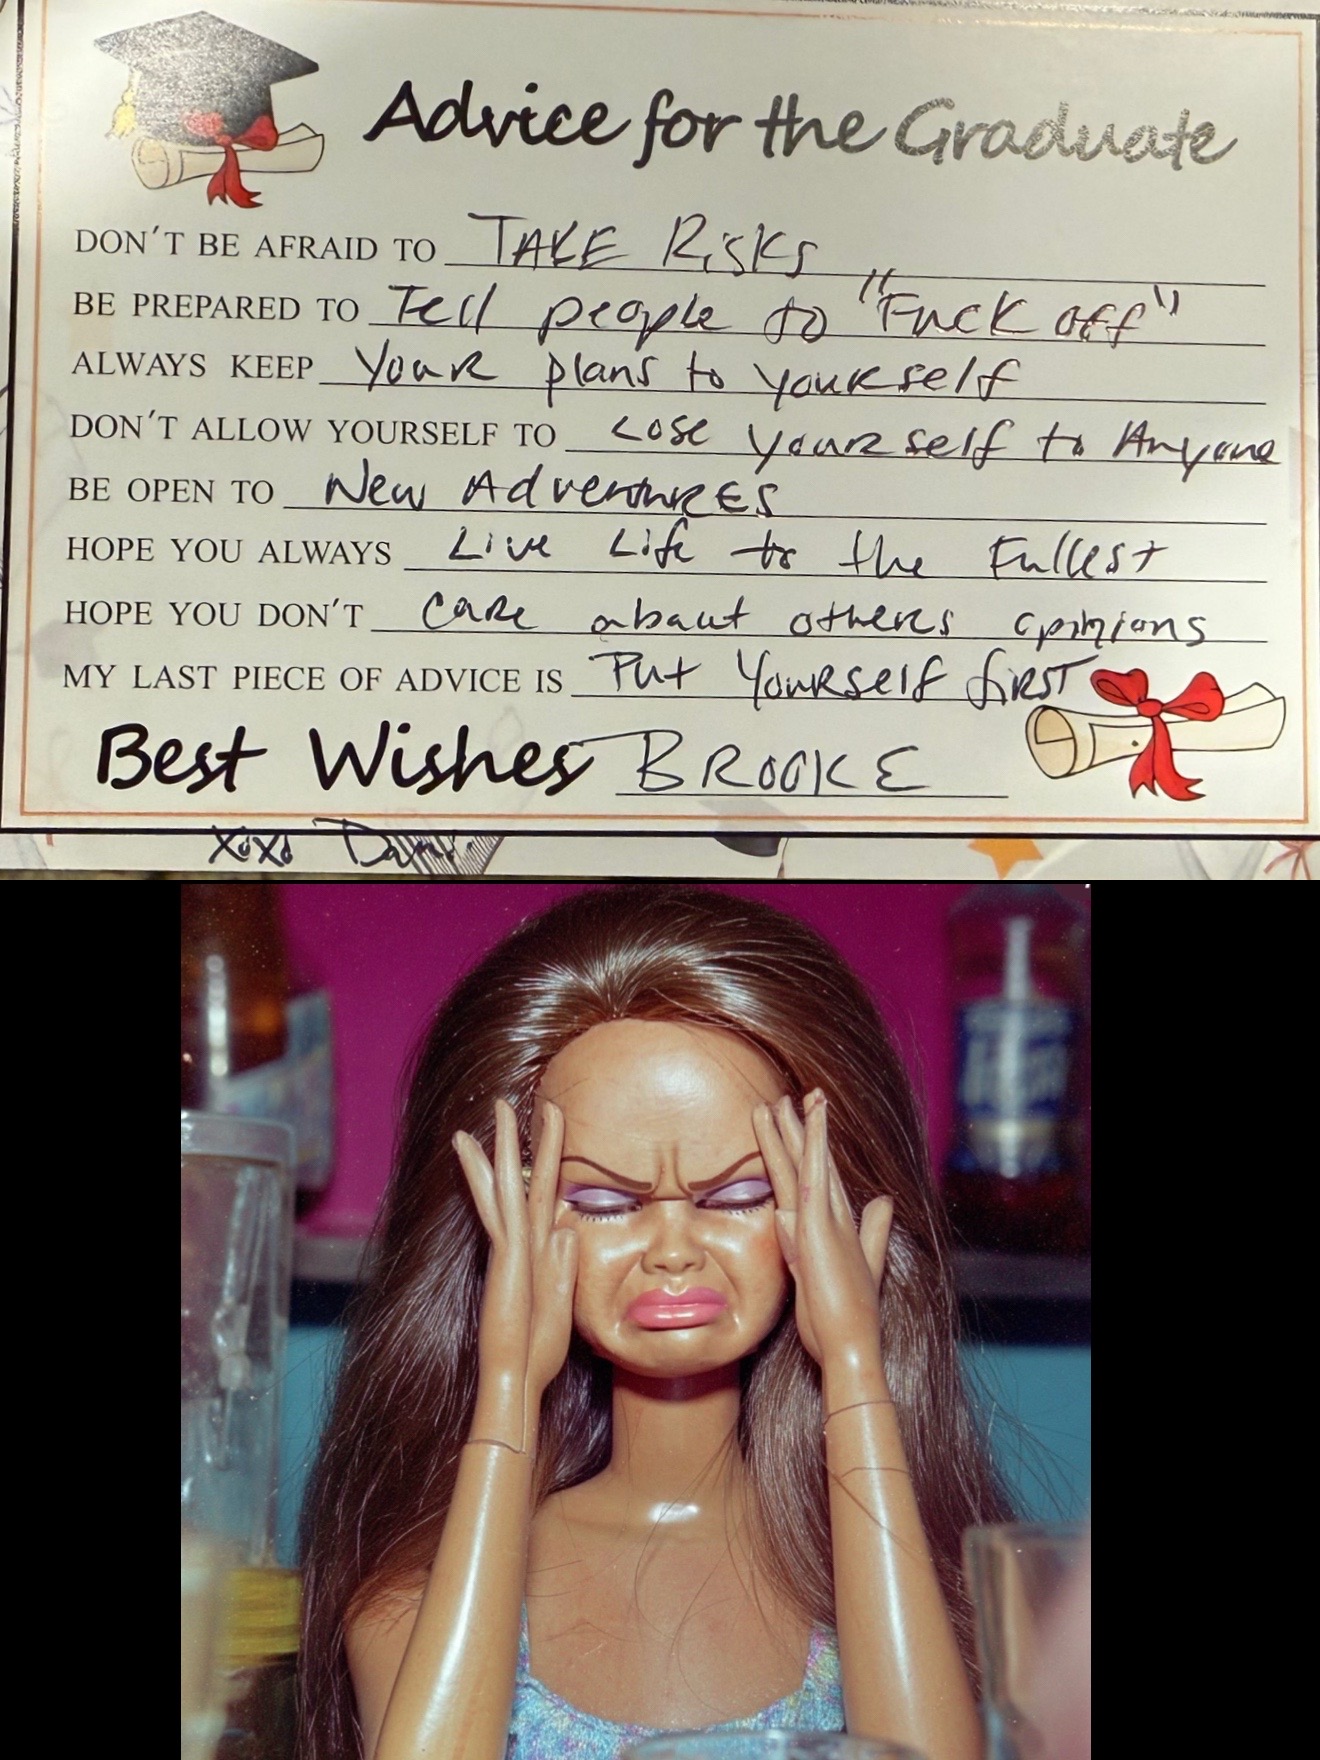 Advice for the Graduate
DON'T BE AFRAID TO TAKE RiSKS
BE PREPARED TO Tell people to "Fuck off"
ALWAYS KEEP YouR plans to yourself
DON'T ALLOW YOURSELF TO Lose youRself to Anyone
BE OPEN TO New AdventuRES
HOPE YOU ALWAYS Live Life to the Fullest
HOPE YOU DON'T CaRe about otheRs opinions
MY LAST PIECE OF ADVICE IS Put YouRself fiRST
Best Wishes BROOKE
xoxo